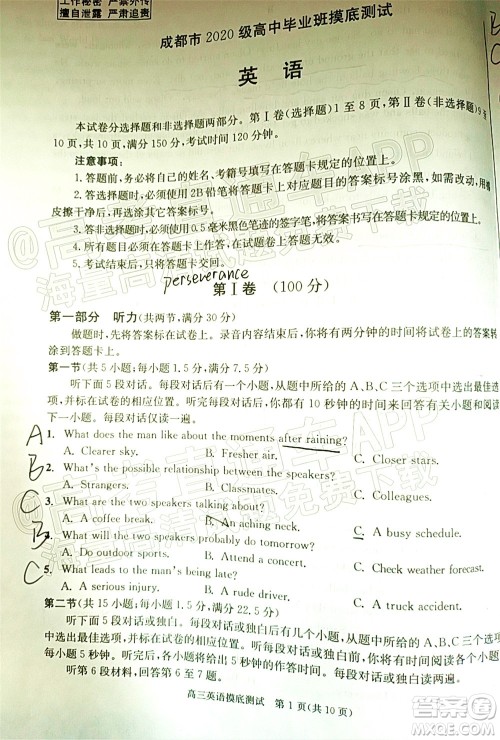 工作秘密 严禁外传
擅自泄露 严肃追责
成都市 2020 级高中毕业班摸底测试
英语
本试卷分选择题和非选择题两部分。第Ⅰ卷(选择题)1 至 8 页,第Ⅱ卷(非选择题)9 至
10 页,共 10 页,满分 150 分,考试时间 120 分钟。
注意事项:
1. 答题前,务必将自己的姓名、考籍号填写在答题卡规定的位置上。
2. 答选择题时,必须使用 2B 铅笔将答题卡上对应题目的答案标号涂黑,如需改动,用橡
皮擦干净后,再选涂其它答案标号。
3. 答非选择题时,必须使用 0.5 毫米黑色笔迹的签字笔,将答案书写在答题卡规定的位置上。
4. 所有题目必须在答题卡上作答,在试题卷上答题无效。
5. 考试结束后,只将答题卡交回。
perseverance
第Ⅰ卷 (100 分)
第一部分 听力(共两节,满分 30 分)
做题时,先将答案标在试卷上。录音内容结束后,你将有两分钟的时间将试卷上的答案转
涂到答题卡上。
第一节(共 5 小题;每小题 1.5 分,满分 7.5 分)
听下面 5 段对话。每段对话后有一个小题,从题中所给的 A、B、C 三个选项中选出最佳
选项,并标在试卷的相应位置。听完每段对话后,你都有 10 秒钟的时间来回答有关小题和阅读
下一小题。每段对话仅读一遍。
A 1. What does the man like about the moments after raining?
A. Clearer sky. B. Fresher air. C. Closer stars.
B 2. What's the possible relationship between the speakers?
A. Strangers. B. Classmates. C. Colleagues.
C 3. What are the two speakers talking about?
A. A coffee break. B. An aching neck. C. A busy schedule.
B 4. What will the two speakers do tomorrow?
A. Do outdoor sports. B. Attend a concert. C. Watch TV at home.
C 5. What leads to the man's being late?
A. A serious injury. B. A rude driver. C. A truck accident.
第二节(共 15 小题;每小题 1.5 分,满分 22.5 分)
听下面 5 段对话或独白。每段对话或独白后有几个小题,从题中所给的 A、B、C 三个选项
中选出最佳选项,并标在试卷的相应位置。听每段对话或独白前,你将有时间阅读各个小题,每
小题 5 秒钟;听完后,各小题将给出 5 秒钟的作答时间。每段对话或独白读两遍。
听第 6 段材料,回答第 6、7 题。
高三英语摸底测试 第 1 页(共 10 页)